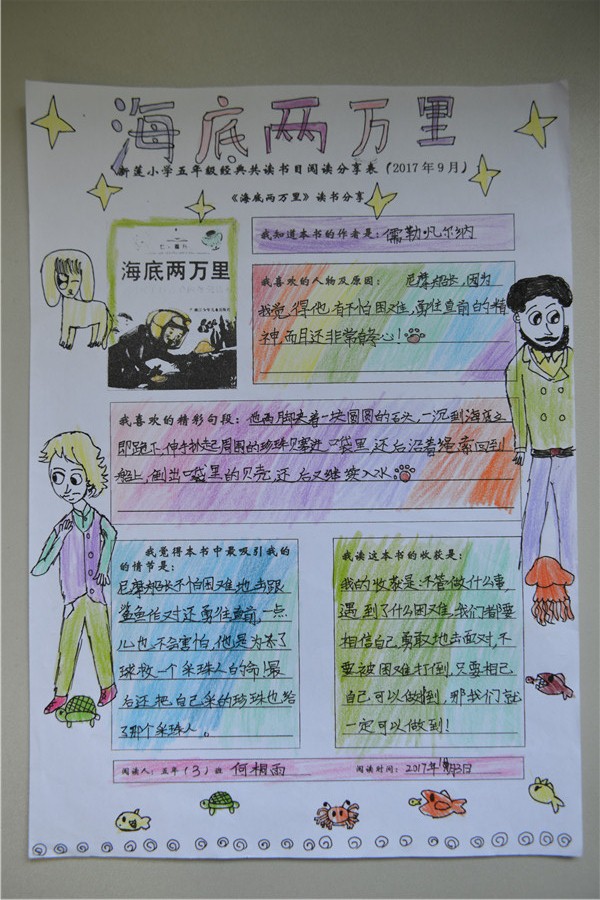 海底两万里
新莲小学五年级经典共读书目阅读分享表（2017年9月）
《海底两万里》读书分享
海底两万里
我知道本书的作者是：儒勒·凡尔纳
我喜欢的人物及原因： 尼摩船长,因为
我觉得他有不怕困难,勇往直前的精
神,而且还非常善心！
我喜欢的精彩句段：他两脚夹着一块圆圆的石头,一沉到海底立
即跪下,伸手抄起周围的珍珠贝塞进 口袋里,还后沿着绳索回到
船上,倒出口袋里的贝壳,还后又继续入水。
我觉得本书中最吸引我的
的情节是：
尼摩船长不怕困难地去跟
鲨鱼作对还勇往直前,一点
儿也不会害怕,他是为了
球救一个采珠人的命!最
后还把自己采的珍珠也给
了那个采珠人。
我读这本书的收获是：
我的收获是:不管做什么事,
遇到了什么困难,我们都要
相信自己,勇敢地去面对,不
要被困难打倒,只要相己
自己可以做到,那我们就
一定可以做到!
阅读人：五年（3）班 何相雨
阅读时间：2017年 月3日